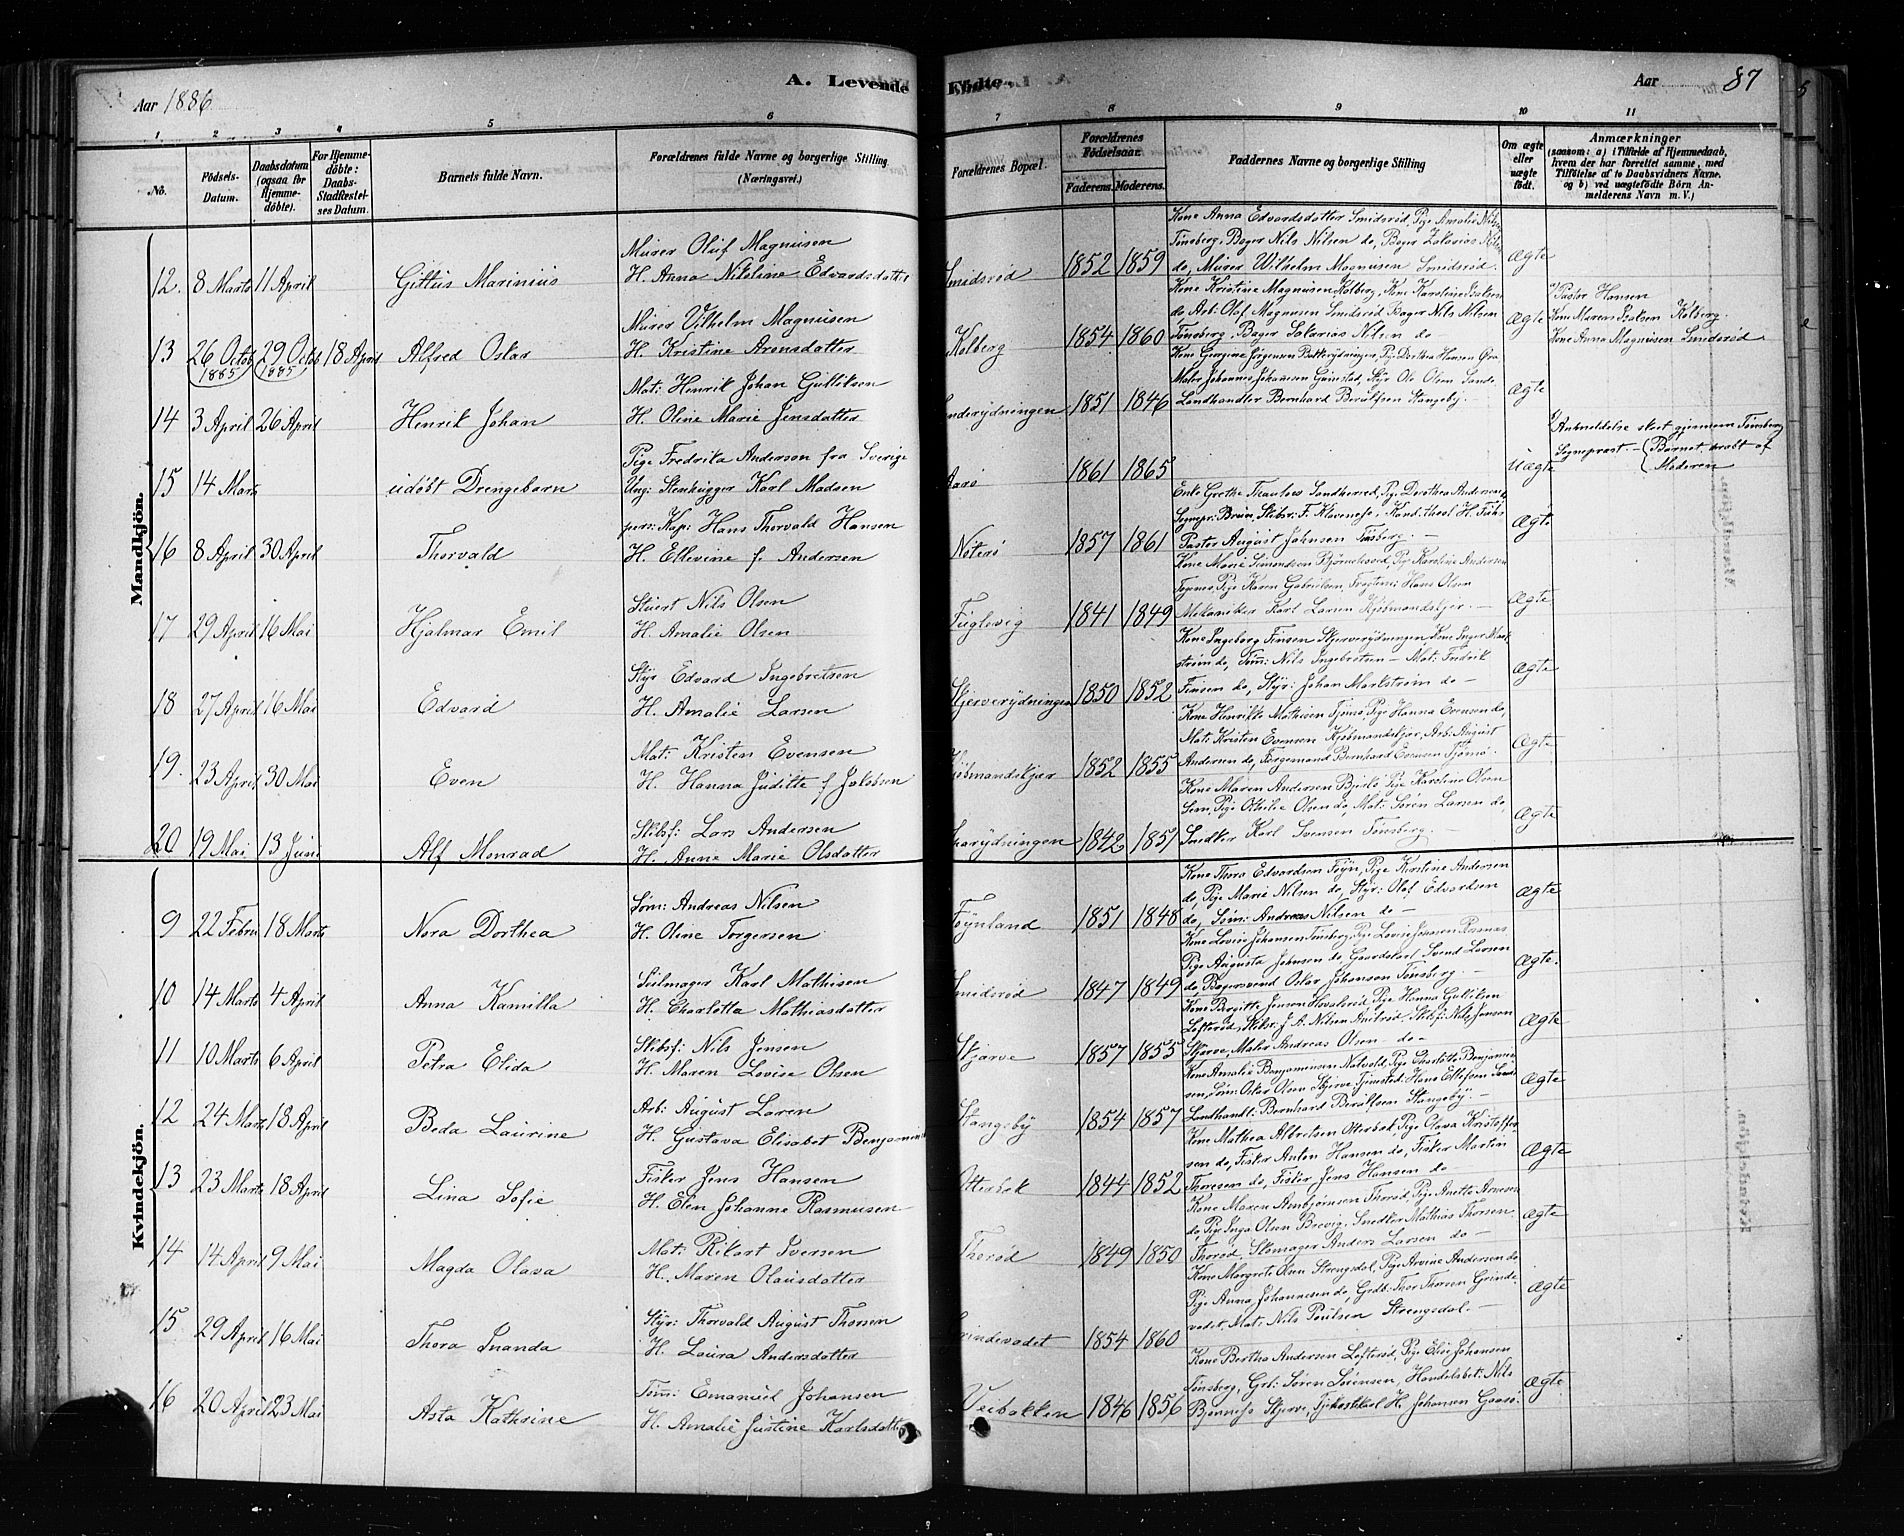 A. Levende Fødte.
Aar 1886
Aar 87
1 2 3 4 5 6 7 8 9 10 11
No.
Födsels-Datum.
Daabsdatum (ogsaa for Hjemmedøbte).
For Hjemmedøbte: Daabs-Stadfæstelses Datum.
Barnets fulde Navn.
Forældrenes fulde Navne og borgerlige Stilling (Næringsvei.)
Forældrenes Bopæl.
Forældrenes Fødselsaar.
Faderens. Moderens.
Faddernes Navne og borgerlige Stilling
Om ægte eller uægte födt.
Anmærkninger
(saasom: a) i Tilfælde af Hjemmedaab, hvem der har forrettet samme, med Tilföielse af to Daabsvidners Navne, og b) ved uægtefödte Börn Anmelderens Navn m. V.)
Mandkjön.
Murer Oluf Magnusen
Kone Anna Edvardsdatter Smidsrød, Pige Amalie Nilsen
Tønsberg, Bager Nils Nilsen do, Bager Zakarias Nilsen
12. 8 Marts 11 April Gittus Marinius H. Anna Nikoline Edvardsdatter Smidsrød 1852 1859 do, Murer Wilhelm Magnusen Smidsrød. Ægte
Murer Vilhelm Magnusen
Kone Kristine Magnusen Kolberg, Kone Karoline Isaksen
do, Arb. Olaf Magnusen Smidsrød Bager Nils Nilsen
13 26 Octob 1885 29 Octob 1885 18 April Alfred Oskar H. Kristine Arensdatter Kolberg 1854 1860 Tønsberg Bager Sakarias Nilsen do Ægte
Pastor Hansen
Kone Maren Isaksen Kolberg.
Kone Anna Magnusen Smidsrød
Mat: Henrik Johan Gulliksen
Kone Georgine Jørgensen Bakkerydningen, Pige Dorthea Hansen Øra
Maler Johannes Johansen Grimstad, Styr Ole Olsen Sande
14 3 April 26 April Henrik Johan H. Oline Marie Jensdatter 1851 1846 Landhandler Bernhard Berulfsen Stangeby. Ægte
Pige Fredrika Anderson fra Sverige
Anmeldelse skeet gjennem Tønsberg
Sogneprest. (Barnet dræbt af
Moderen
15 14 Marts udøbt Drengebarn Ung: Stenhugger Karl Madsen Aarø 1861 1865 Uægte
pers: Kap: Hans Thorvald Hansen
Enke Grethe Thaulow Sandherred, Pige Dorothea Andersen
Sognepr: Bruun, Skibsr: F. Klavenes, Kand: theol H.
16 8 April 30 April Thorvald H. Ellevine f. Andersen Nøterø 1857 1861 Pastor August Johnsen Tønsberg. Ægte
Stuert Nils Olsen
Kone Marie Simondsen Bjørnebovd, Pige Karoline Andersen
Pige Karen Gabrielsen Hans Olsen
17 29 April 16 Mai Hjalmar Emil H. Amalie Olsen Fuglevig 1841 1849 Mekaniker Karl Larsen Kjøbmandskjær. Ægte
Styr Edvard Ingebretsen
Kone Ingeborg Finsen Skjerverydningen, Kone Inger Mark
strøm do, Tøm: Nils Ingebretsen Mat: Fredrik
18 27 April 16 Mai Edvard H. Amalie Larsen Skjerverydningen 1850 1852 Finsen do, Styr: Johan Markstrøm do Ægte
Mat: Kristen Evensen
Kone Henrikke Mathisen Tjømø, Pige Hanna Evensen do,
Mat: Kristen Evensen Kjøbmandskjær, Arb: August
19. 23 April 30 Mai Even H. Hanna Juditte f Jakobsen Kjøbmandskjær 1852 1855 Andersen do, Færgemand Bernhard Evensen Tjømø. Ægte
Skibsf: Lars Andersen
Kone Maren Andersen Bjerkø Pige Karoline Olsen
Sem, Pige Ottilie Olsen do, Mat: Søren Larsen do,
20 19 Mai 13 Juni Alf Monrad H. Anne Marie Olsdatter 1842 1851 Snedker Karl Svensen Tønsberg. Ægte
Kvindekjön.
Søm: Andreas Nilsen
Kone Thora Edvardsen Føyn, Pige Kirstine Andersen
do, Pige Marie Nilsen do, Styr: Olaf Edvardsen
9 22 Febru 18 Marts Nora Dorthea H. Oline Torgersen Føynland 1851 1848 do, Søm: Andreas Nilsen do Ægte
Seilmager Karl Mathisen
Kone Lovise Johansen Tønsberg, Pige Lovise Johnsen Rosanes
Pige Augusta Johnsen do, Gaardskarl Svend Larsen
10 14 Marts 4 April Anna Kamilla H. Charlotta Mathiasdatter Smidsrød 1847 1849 do, Bagersvend Oskar Johansen Tønsberg. Ægte.
Skibsf: Nils Jensen
Kone Birgitte Jensen Hovalsrød Pige Hanna Gulliksen
Lofterød, Skibsr: J. A. Nilsen Skibsf: Nils Jensen
11 10 Marts 6 April Petra Elida H. Maren Lovise Olsen Skjærve 1857 1855 Skjerve, Maler Andreas Olsen do Ægte
Arb: August Laren
Kone Amalie Benjaminsen Pige Charlotte Benjamin
sen, Søm: Oskar Olsen Skjerve, Tjenested: Hans Ellefsen
12 24 Marts 18 April Beda Laurine H. Gustava Elisabet Benjamin Stangeby 1854 1857 Landhandl: Bernhard Berulfsen Stangeby. Ægte
Fisker Jens Hansen
Kone Mathea Albretsen Otterbæk, Pige Olava Kristoffer
sen do, Fisker Anton Hansen do, Fisker Martin
13 23 Marts 18 April Lina Sofie H. Elen Johanne Rasmusen Otterbæk 1844 1852 Thoresen do, Fisker Jens Hansen do Ægte
Mat: Rikart Iversen
Kone Maren Arnbjørnsen Thorød, Pige Anette Arnesen
do, Pige Inga Olsen Brevig, Snedker Mathias Thorsen
14 14 April 9 Mai Magda Olava H. Maren Olausdatter Thorød 1849 1850 Thorød, Skomager Anders Larsen do Ægte
Styr: Thorvald August Thorsen
Kone Margrete Olsen Strengsdal, Pige Arvine Andersen do,
Pige Anna Johannesen do, Grdb: Thor Thorsen Grinde
15 29 April 16 Mai Thora Inanda H. Laura Andersdatter Grindevadet 1854 1860 vadet, Mat: Nils Poulsen Strengsdal. Ægte
Tøm: Emanuel Johansen
Kone Bertha Andersen Lofterød, Pige Elise Johansen
Tønsberg, Grb: Søren Sørensen, Handelsbet: Nils
16 20 April 23 Mai Asta Kathrine H. Amalie Justine Karlsdatter Veibakken 1846 1856 Bjønnes Skjerve, H. Johansen Gaasø. Ægte